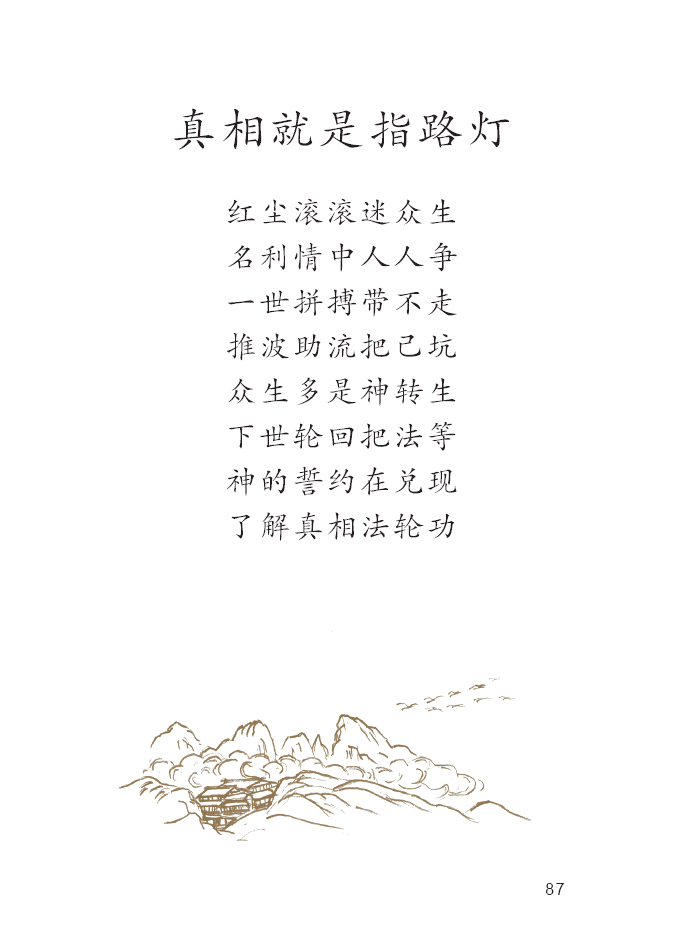 真相就是指路灯
红尘滚滚迷众生
名利情中人人争
一世拼搏带不走
推波助流把己坑
众生多是神转生
下世轮回把法等
神的誓约在兑现
了解真相法轮功
87